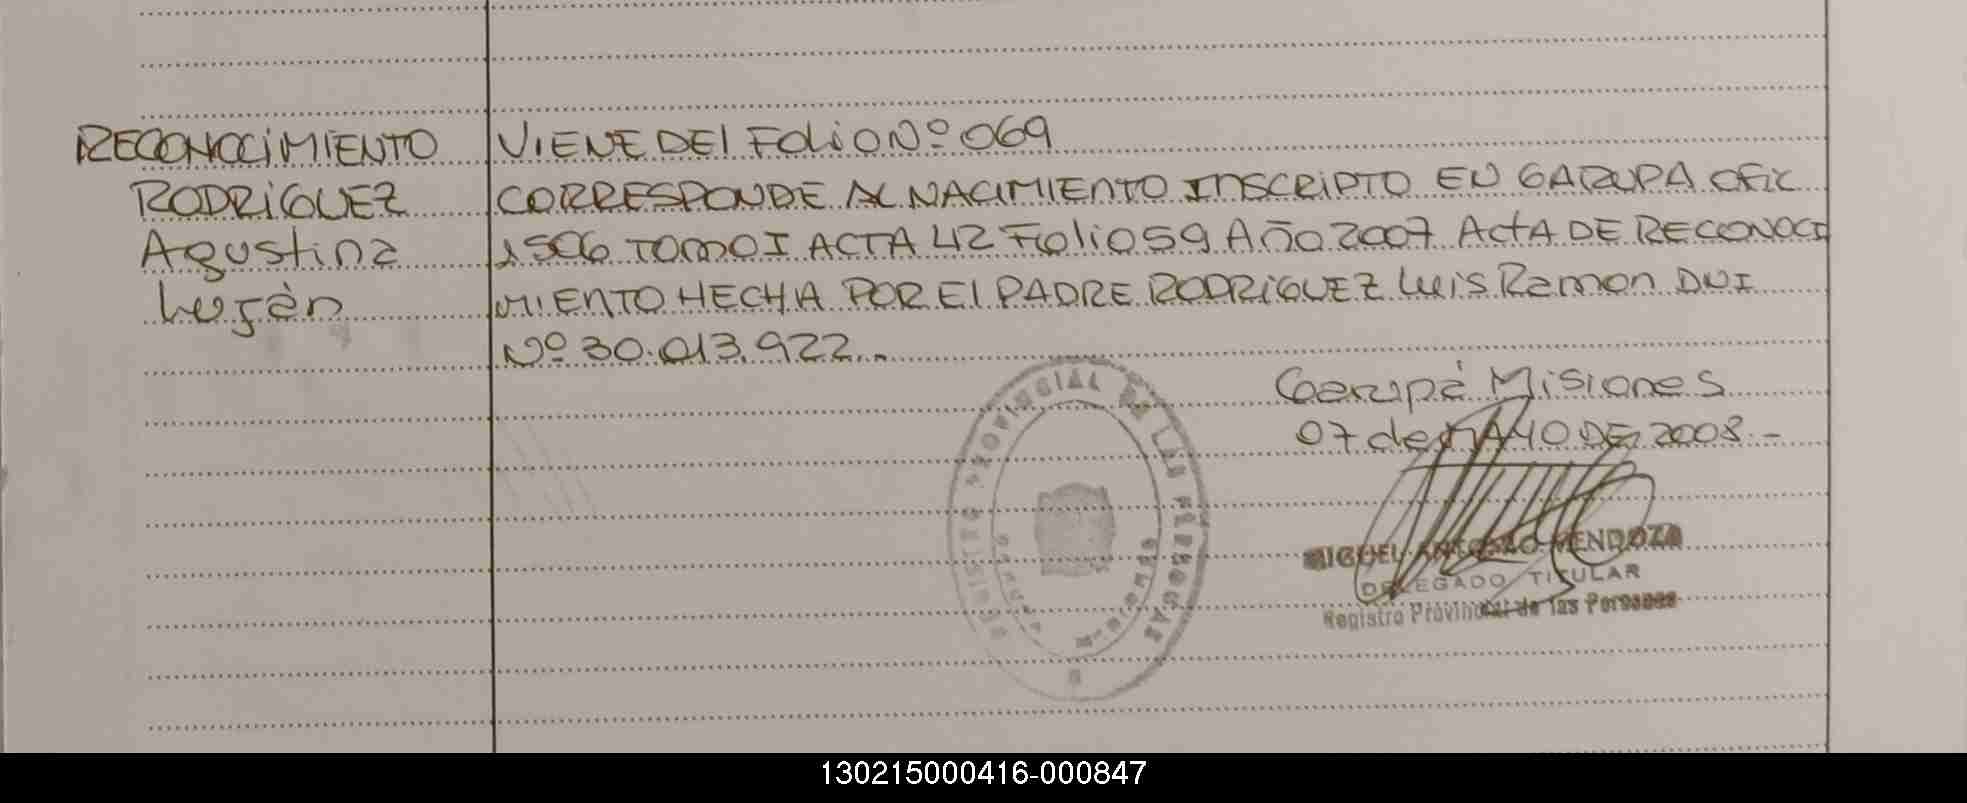 RECONOCIMIENTO
RODRIGUEZ
Agustina
Luján
VIENE DEl FoliO Nº 069
CORRESPONDE AL NACIMIENTO INSCRIPTO EN GARUPA OFIC
1506 TOMO I ACTA 42 Folio 59 AÑO 2007 ActA DE RECONOCI
MIENTO HECHA POR El PADRE RODRIGUEZ Luis Ramon DNI
Nº 30.013.922..
Garupá Misiones
07 de MAYO DE 2008.-
REGISTRO PROVINCIAL DE LAS PERSONAS
GARUPA
MIGUEL MENDOZA
DELEGADO TITULAR
Registro Provincial de las Personas
130215000416-000847